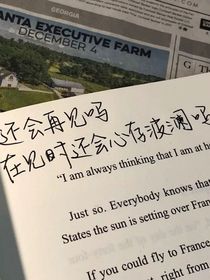 GEORGIA
ANTA EXECUTIVE FARM
DECEMBER 4
还会再见吗
在见时还会心存波澜吗
"I am always thinking that I am at h
Just so. Everybody knows that
States the sun is setting over Fran
If you could fly to France